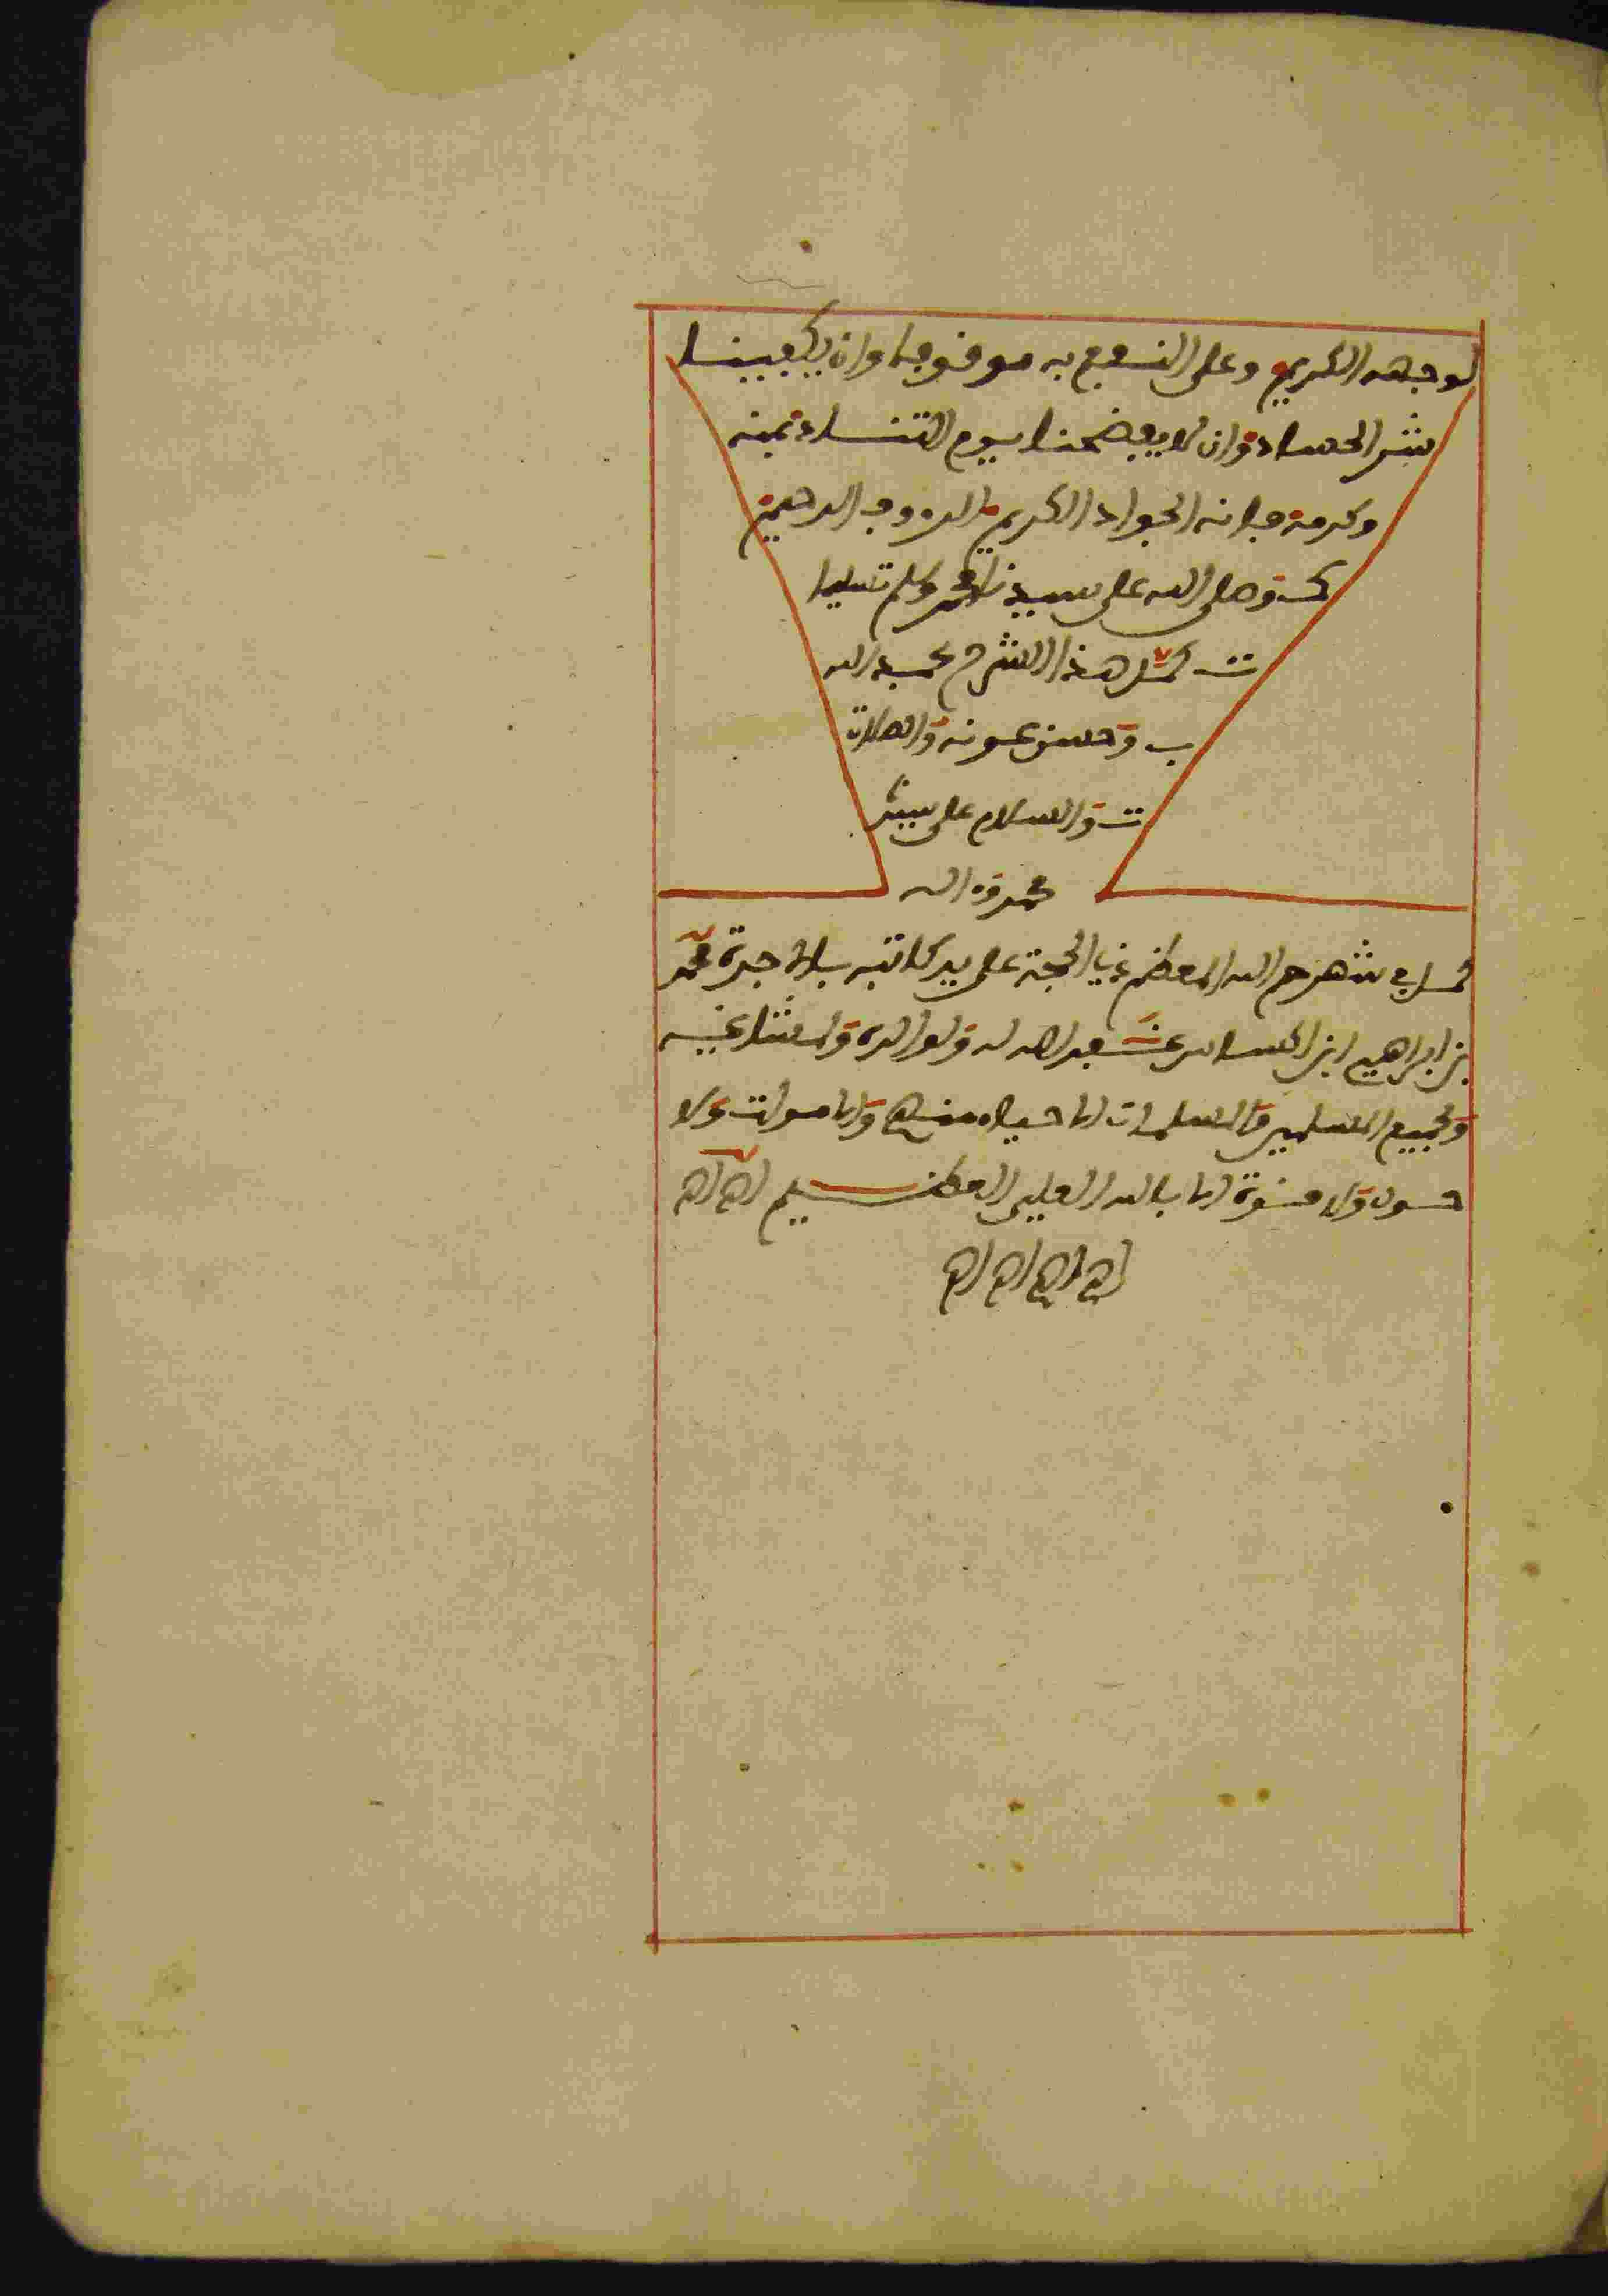 لوجهه الكريم وعلى النفع به موقوفا وان يكفينا
شر الحساد وان لا يفضحنا يوم التناد بمنه
وكرمه فانه الجواد الكريم الرءوف الرحيم
وصلى الله على سيدنا محمد وسلم تسليما
كمل هذا الشرح بحمد الله
وحسن عونه والصلاة
والسلام على سيدنا
محمد واله
كمل في شهر حرم الله المعظم ذي الحجة على يد كاتبه بلا اجرة محمد
بن ابراهيم ابن غفر الله له ولوالديه ولمشايخه
ولجميع المسلمين والمسلمات الاحياء منهم والاموات ولا
حول ولا قوة الا بالله العلي العظيم اه اه
اه اه اه اه